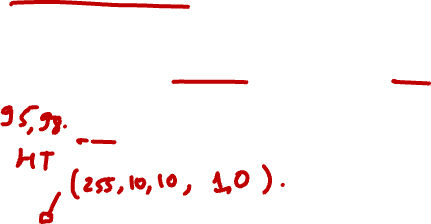 95,98.
HT
(255,10,10, 1,0).